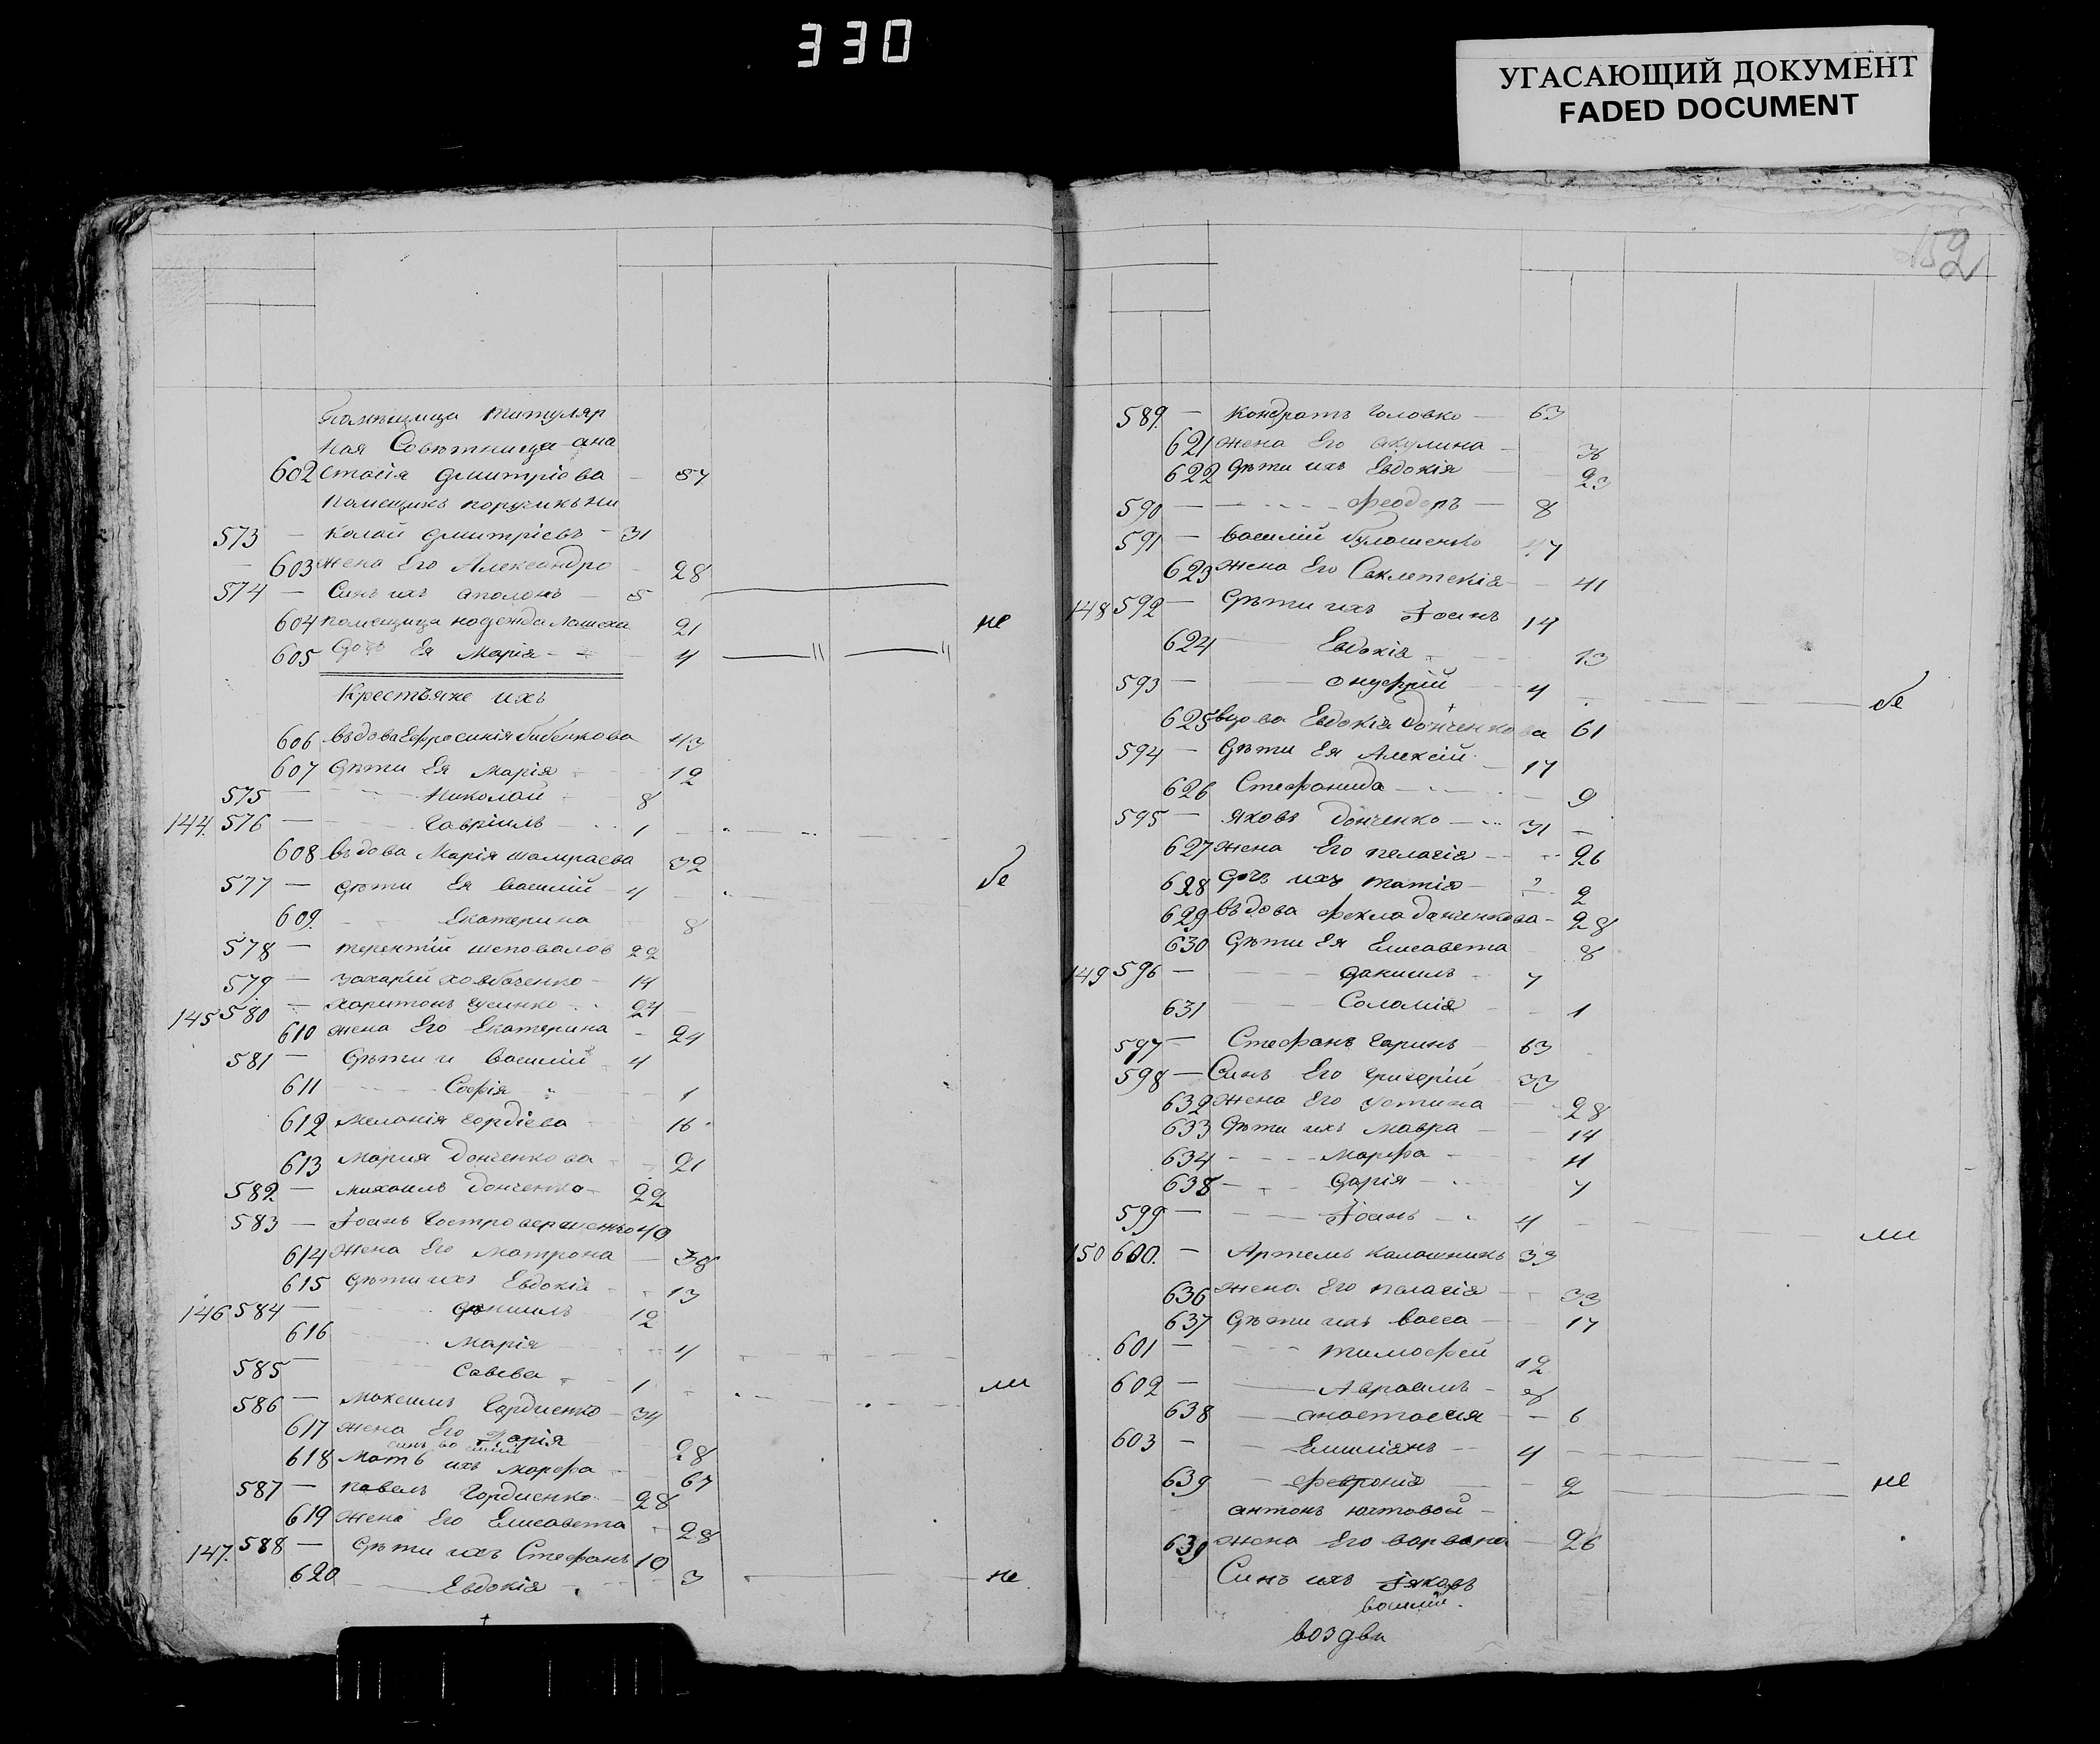 330
УГАСАЮЩИЙ ДОКУМЕНТ
FADED DOCUMENT
152
Помѣщица титуляр
ная Совѣтница ана
602 стасія Дмитріова — 57
Помещикъ поручикъ Ни
573 — колай Дмитріевъ — 31
603 жена Его Александра — 28
574 — Синъ ихъ аполонъ — 5
604 помещица надежда 21 не
605 Дочь Ея Марія — 4
Крестьяне ихъ
606 въдова Ефросинія Бибенкова 43
607 Дѣти Ея Марія 12
575 — Николай 8
144 576 — Гавріилъ 1
608 въдова Марія 32
577 — Дѣти Ея василій 4 бе
609. Екатерина 8
578 — терентій шеповалов 22
579 — Захарій 14
145 580 — Харитонъ 24
610 жена Его Екатерина — 24
581 — Дѣти и василій 4
611 Софія 1
612 Меланія Гордіева 16
613 Мария Донченкова 21
582 — михаилъ Донченко 22
583 — Іоанъ Гостровершенко 40
614 жена Его матрона — 38
615 Дѣти ихъ Евдокія 13
146 584 — Даниилъ 12
616 Марія 4
585 — Савева 1 ли
586 — Максимъ Гардиенко 34
617 жена Его Дарія 28
618 Мать ихъ марфа 67
587 — павелъ Гордиенко 28
619 жена Его Елисавета 28
147. 588 — Дѣти ихъ Стефанъ 10
620 Евдокія 3 не
589. — Кондратъ Головко — 63
621 жена Его акулина — 36
622 Дѣти ихъ Евдокія 23
590 — Феодоръ — 8
591 — василій 47
623 жена Его 41
148 592 — Дѣти ихъ Іоанъ 14
624 Евдокія 13
593 — онуфрій 4 бе
625 вдова Евдокія Донченкова 61
594 — Дѣти Ея Алексій 17
626 Стефанида 9
595 — Яковъ Донченко 31
627 жена Его пелагія 26
628 Дочь ихъ 2
629 въдова Фекла Данченкова — 28
630 Дѣти Ея Елисавета 8
149 596 — Даниилъ 7
631 Соломія 1
597 — Стефанъ Гаринъ 63
598 — Синъ Его григорій 33
632 жена Его устина 28
633 Дѣти ихъ Мавра 14
634 Марфа 11
638 Дарія 7
599 — Іоанъ 4 ли
150 600. — Артемъ Калашникъ 33
636 жена Его пелагія 33
637 Дѣти ихъ васса 17
601 — тимофей 12
602 — Авраамъ 8
638 анастасия — 6
603 — Емиліанъ 4
639 Февронія 2 не
антонъ
639 жена Его варвара — 26
Синъ ихъ Іяковъ
василій.
воздви